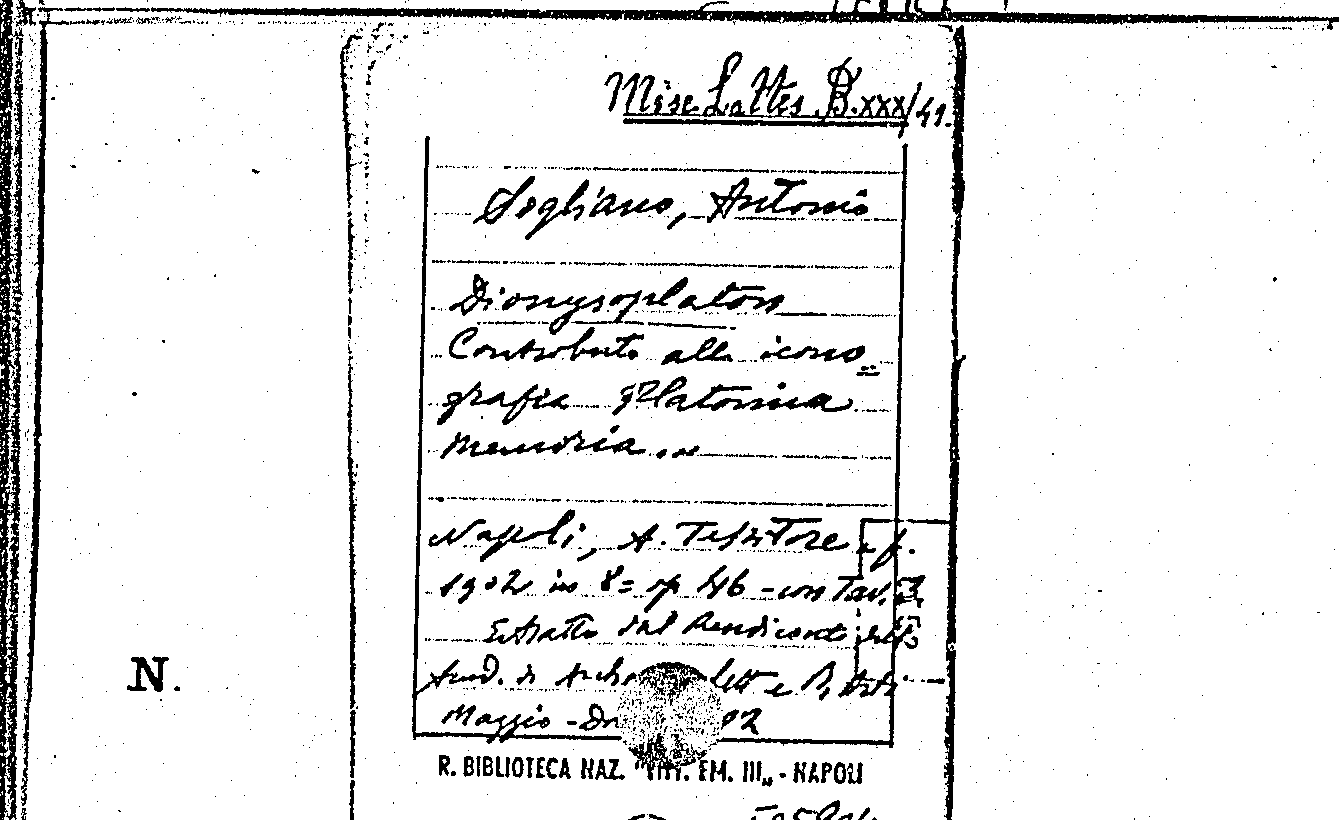 Misc. Lattes B.xxx/41.
Sogliano, Antonio
Dionysoplaton
Contributo alla icono
grafia Platonica
memoria...
Napoli, A. Tessitore e f.
1902 in 8= op 46 - con Tav. 3.
Estratto dal Rendiconti della
Acad. di Arche lett e B, Arti
Maggio - 02
N.
R. BIBLIOTECA NAZ. "VITT. EM. III„ - NAPOLI